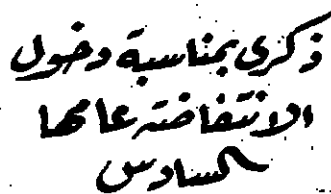 ذكرى بمناسبة دخول
الانتفاضة عامها
السادس